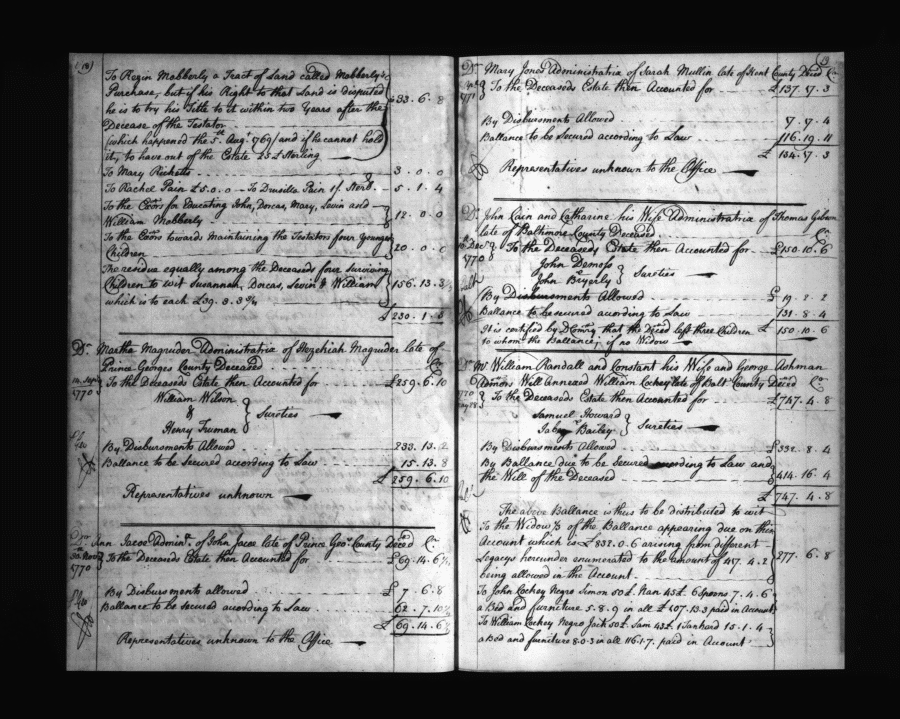 (18)
To Rezin Mobberly a Tract of Land called Mobberly's
Purchase, but if his Right to that Land is disputed
he is to try his Title to it within two Years after the 33.6.8
Decease of the Testator
(which happened the 5th Augt 1769) and if he cannot hold
it, to have out of the Estate 25£ Sterling
To Mary Ricketts 3.0.0
To Rachel Pain £5.0.0 — To Drusilla Pain 1/. Sterg. 5.1.4
To the Exors for Educating John, Dorcas, Mary, Levin and
William Mobberly 12.0.0
To the Exors towards Maintaining the Testators four Younger
Children 20.0.0
The residue equally among the Deceaseds four Surviving
Children to wit Susannah, Dorcas, Levin & William 156.13.3
which is to each £39.3.3¾
£230.1.3
Dr. Martha Magruder Administratrix of Hezekiah Magruder late of
Prince Georges County Deceased Cr.
14. Sepr. To the Deceaseds Estate then Accounted for £259.6.10
1770
William Wilson
& Sureties
Henry Truman
By Disbursments Allowed 233.13.2
Ballance to be Secured according to Law 15.13.8
£259.6.10
Representatives unknown
Dr. Ann Jacoe Adminx. of John Jacoe late of Prince Geos. County Deced Cr.
30. Novr. To the Deceaseds Estate then Accounted for £69.14.6½
1770
By Disbursments allowed £7.6.8
Ballance to be secured according to Law 62.7.10½
£69.14.6½
Representatives unknown to the Office
Dr. Mary Jones Administratrix of Sarah Mullin late of Kent County Deced Cr.
To the Deceaseds Estate then Accounted for £137.17.3
1771
By Disbursments Allowed 7.7.4
Ballance to be Secured according to Law 116.19.11
£134.17.3
Representatives unknown to the Office
Dr. John Cain and Catharine his Wife Administratrix of Thomas Gibson
late of Baltimore County Deceased Cr.
Decr. To the Deceaseds Estate then Accounted for £150.10.6
1770
John Demoss
John Bryerly Sureties
By Disbursments Allowed £19.2.2
Ballance to be secured according to Law 131.8.4
It is certified by D Comry that the Deced left three Children £150.10.6
to whom the Ballance, if no Widow
Dr. William Randall and Constant his Wife and George Ashman
Admors Will Annexed William Cockey late of Balt. County Deced Cr.
To the Deceaseds Estate then Accounted for £747.4.8
Samuel Howard
Bailey Sureties
By Disbursments Allowed £332.8.4
By Ballance due to be Secured according to Law and
the Will of the Deceased 414.16.4
£747.4.8
The above Ballance is thus to be distributed to wit
To the Widow ⅓ of the Ballance appearing due on this
Account which is £832.0.6 arising from different
Legacys hereunder enumerated to the amount of 417.4.2 277.6.8
being allowed in the Account
To John Cockey Negro Simon 50£. Nan 45£ 6 Spoons 7.4.6
a Bed and furniture 5.8.9 in all £107.13.3 paid in Account
To William Cockey Negro Jack 50£. Sam 43£. 1 Tankard 15.1.4
a Bed and furniture 8.0.3 in all 116.1.7. paid in Account